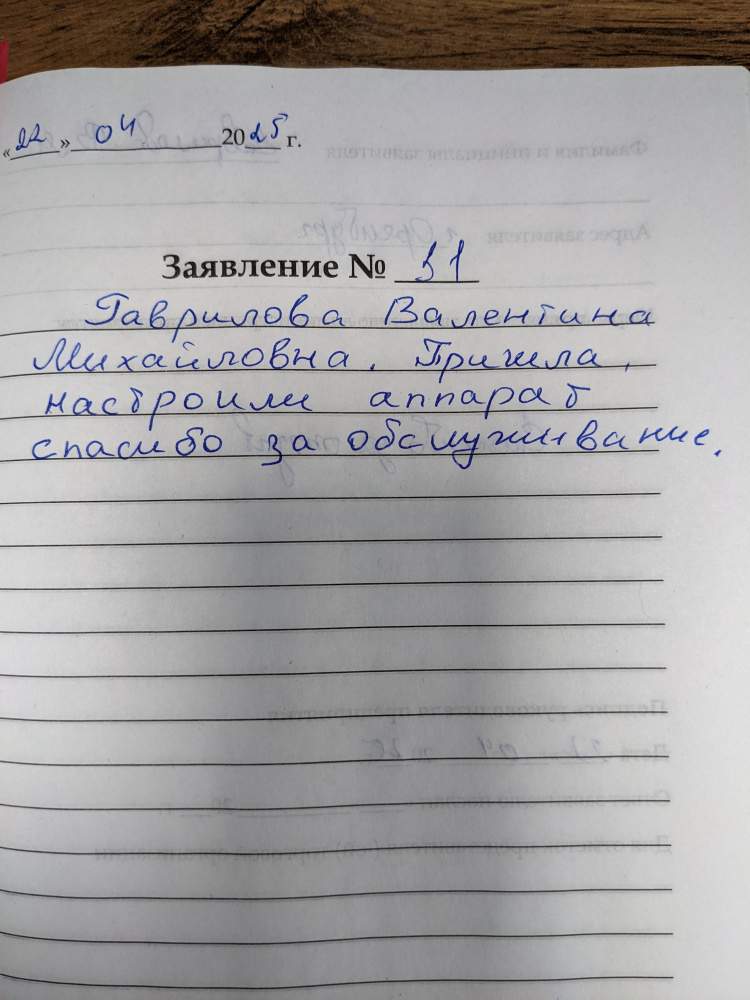 «22» 04 2025 г.
Заявление № 31
Гаврилова Валентина
Михайловна. Пришла,
настроили аппарат
спасибо за обслуживание.